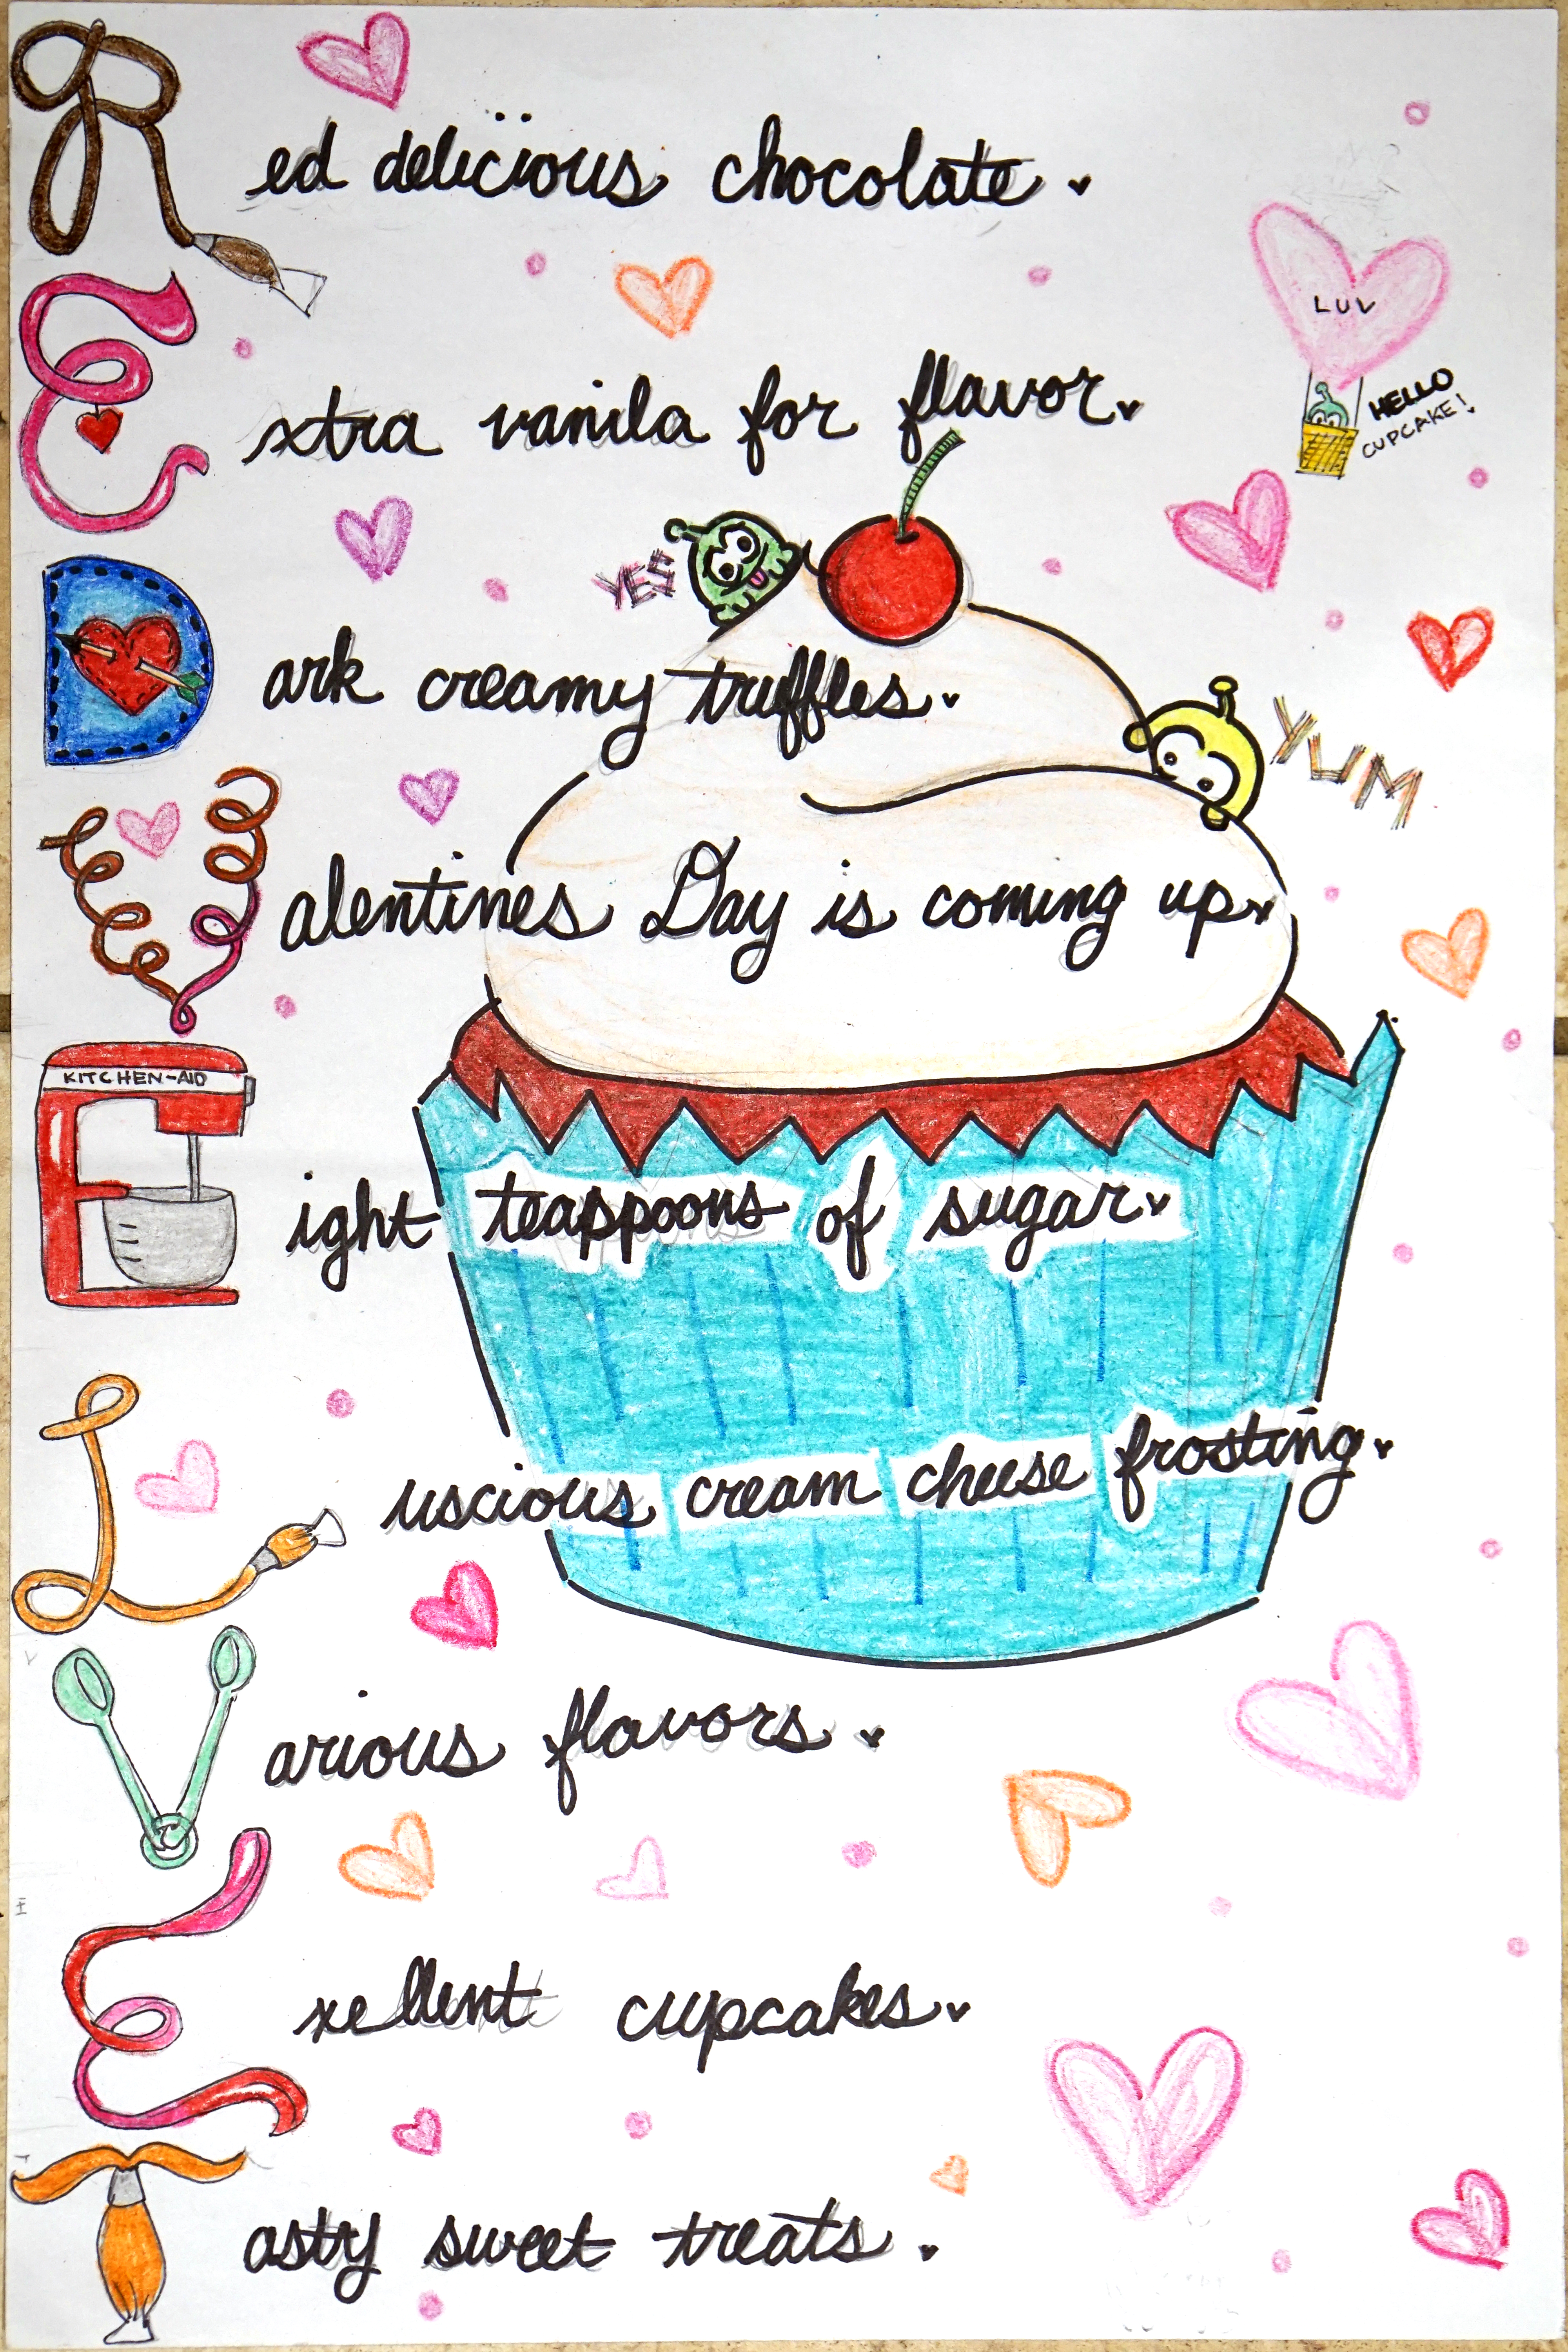 Red delicious chocolate.
LUV
Extra vanila for flavor.
HELLO
CUPCAKE!
YES
Dark creamy truffles.
YUM
Valentines Day is coming up.
KITCHEN-AID
Eight teaspoons of sugar.
Luscious cream cheese frosting.
Various flavors.
Exellent cupcakes.
Tasty sweet treats.